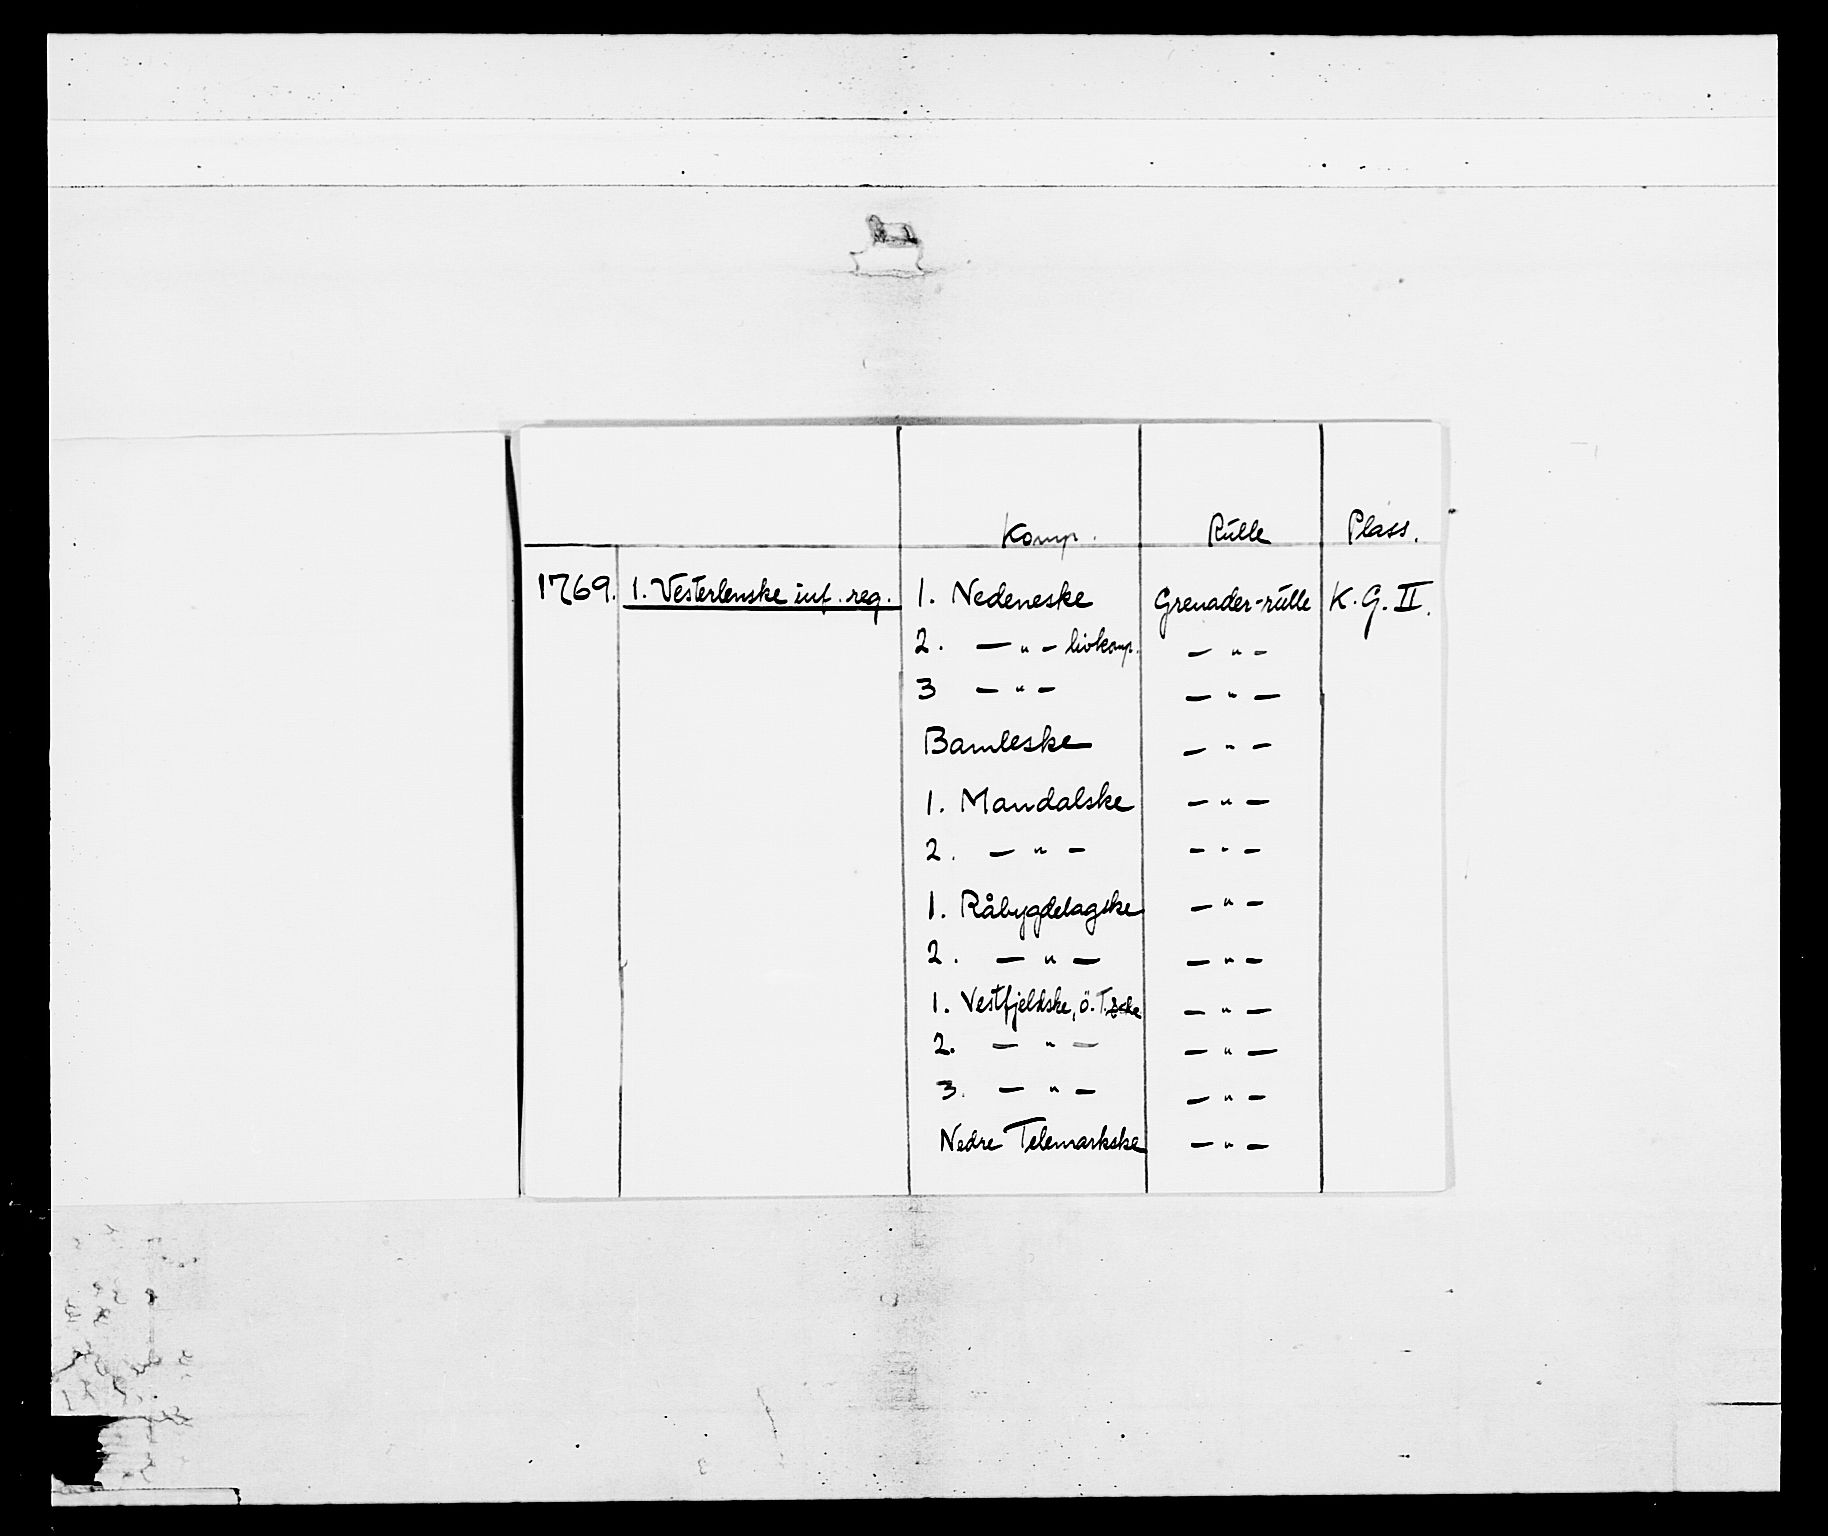 Komp. Rulle Plass.
1769. 1. Vesterlenske inf. reg. 1. Nedeneske Grenader-rulle K.G. II.
2. — " — livkomp. — " —
3 — " — — " —
Bamleske — " —
1. Mandalske — " —
2. — " — — " —
1. Råbygdelagske — " —
2. — " — — " —
1. Vestfjeldske, ö. T. — " —
2. — " — — " —
3. — " — — " —
Nedre Telemarkske — " —